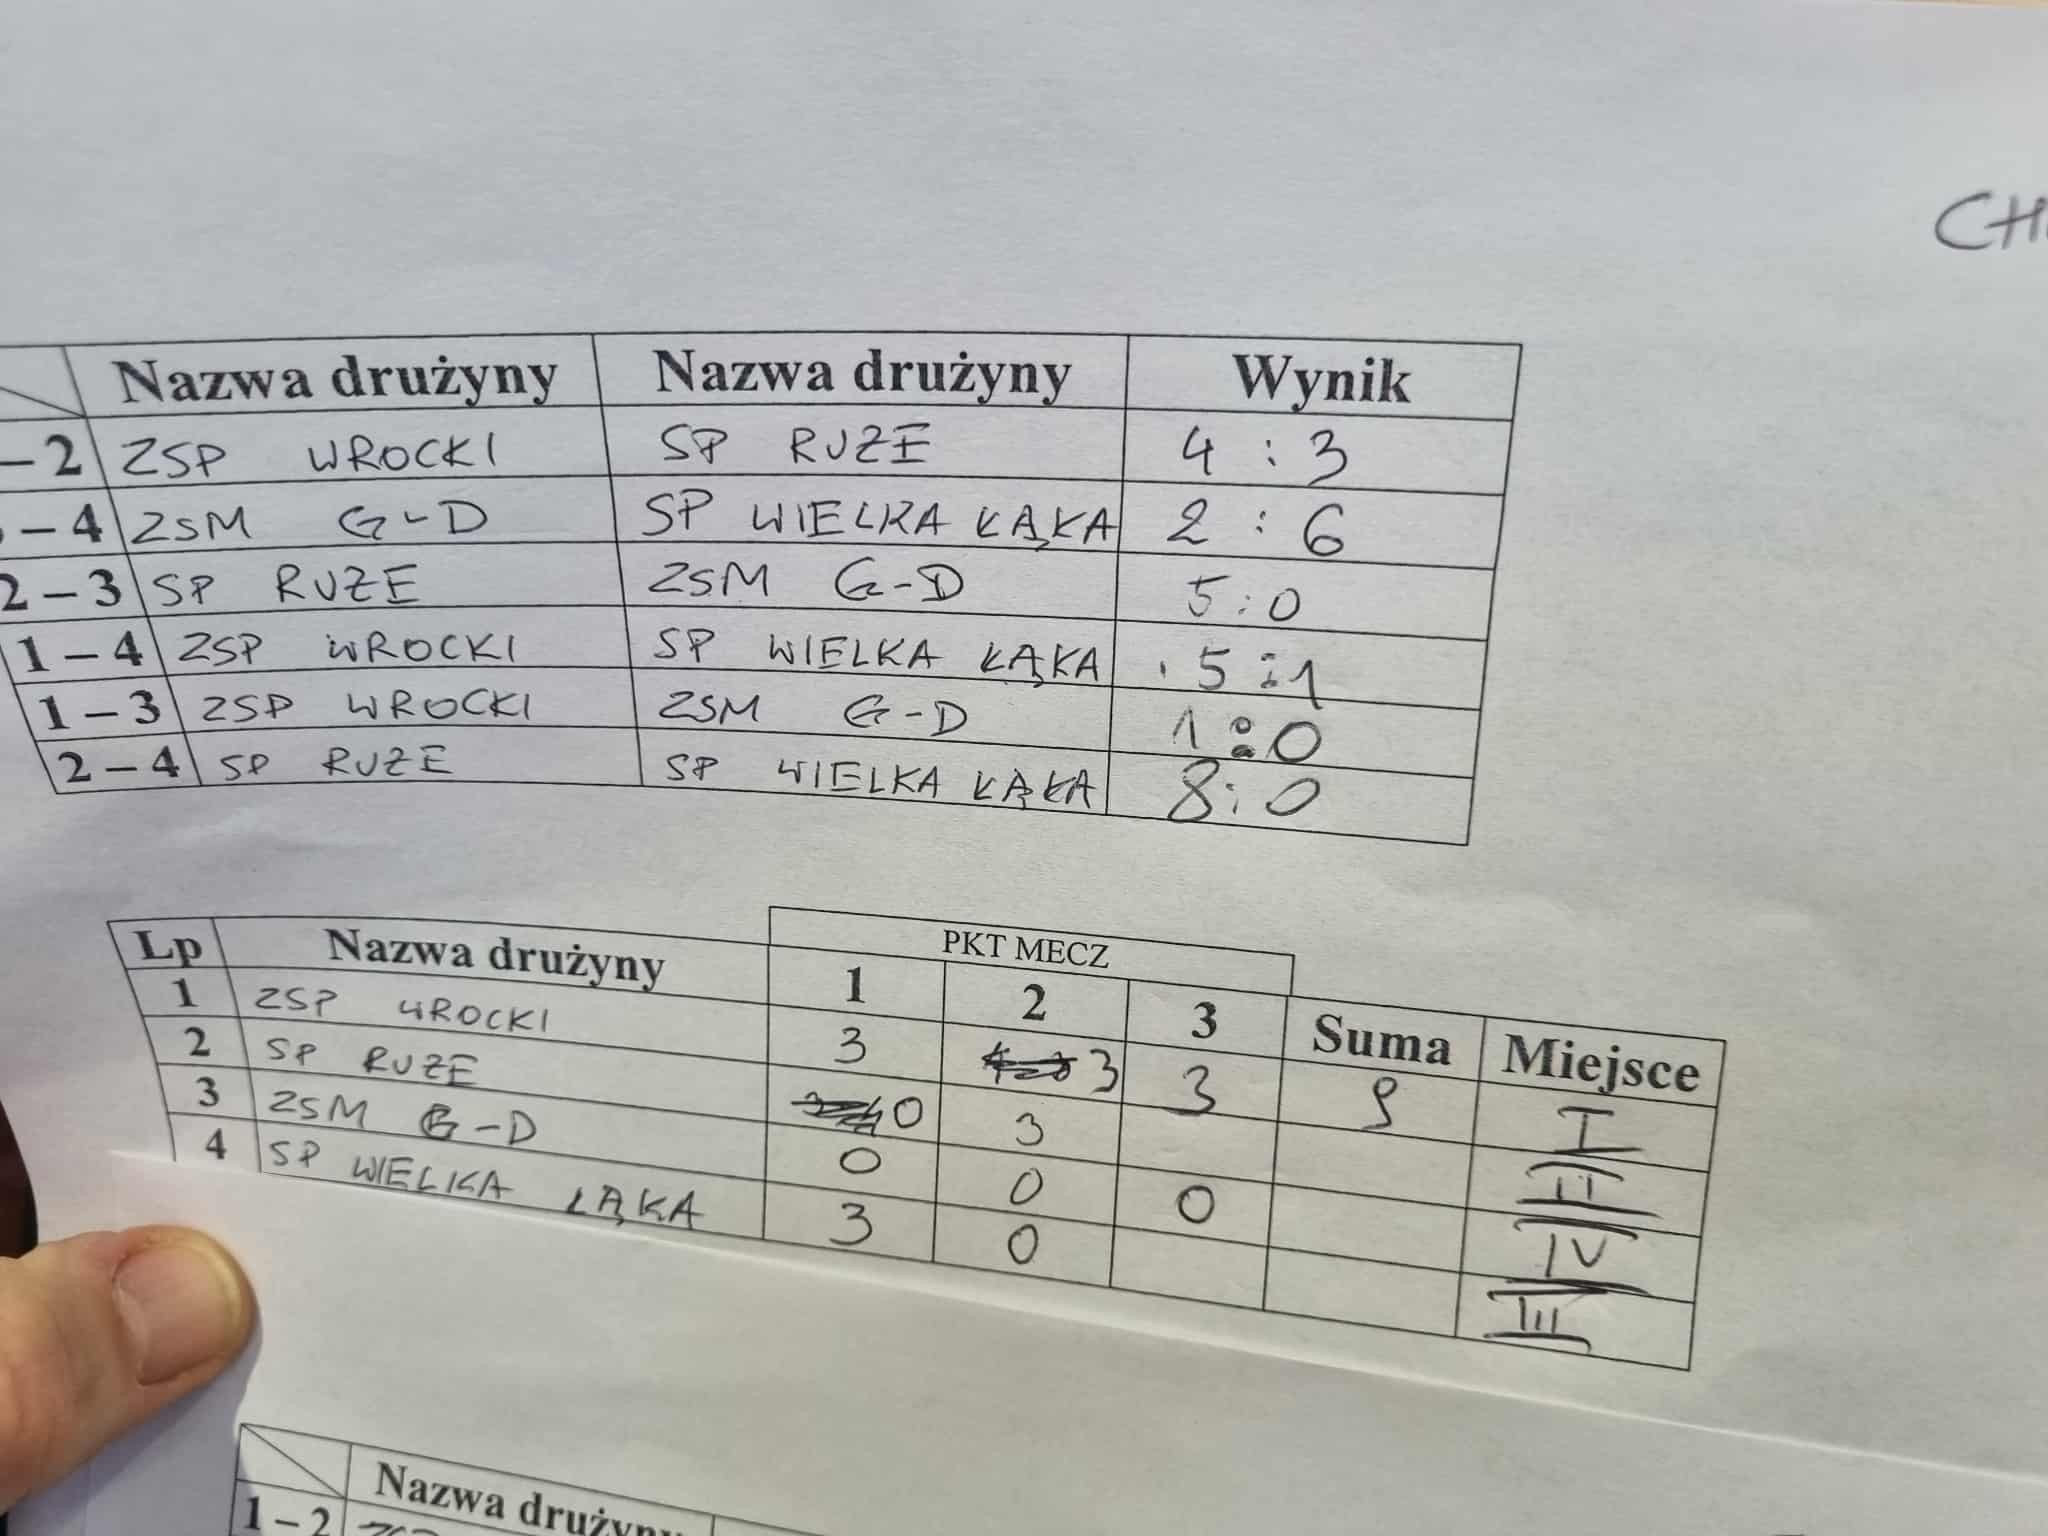 CH
Nazwa drużyny Nazwa drużyny Wynik
– 2 ZSP WROCKI SP RUZE 4 : 3
– 4 ZSM G-D SP WIELKA ŁĄKA 2 : 6
2 – 3 SP RUZE ZSM G-D 5 : 0
1 – 4 ZSP WROCKI SP WIELKA ŁĄKA 5 : 1
1 – 3 ZSP WROCKI ZSM G-D 1 : 0
2 – 4 SP RUZE SP WIELKA ŁĄKA 8 : 0
PKT MECZ
Lp Nazwa drużyny 1 2 3 Suma Miejsce
1 ZSP WROCKI 3 3 3 9 I
2 SP RUZE 0 3 II
3 ZSM G-D 0 0 0 IV
4 SP WIELKA ŁĄKA 3 0 III
Nazwa drużyny
1 – 2